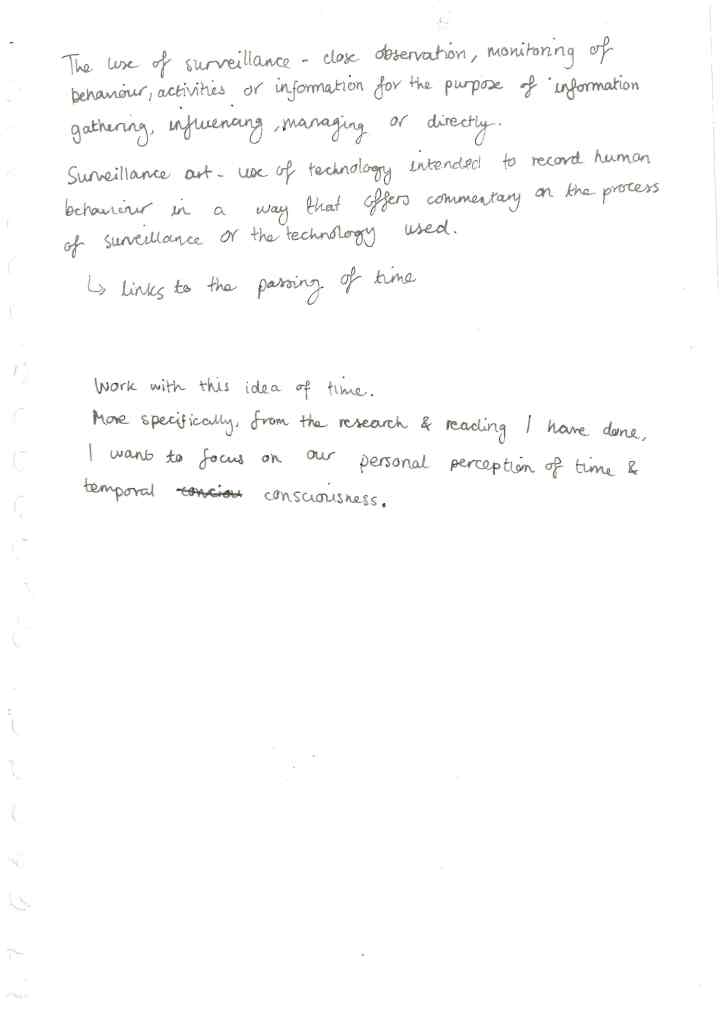 The use of surveillance - close observation, monitoring of
behaviour, activities or information for the purpose of information
gathering, influencing, managing or directly.
Surveillance art - use of technology intended to record human
behaviour in a way that offers commentary on the process
of surveillance or the technology used.
↳ links to the passing of time
Work with this idea of time.
More specifically, from the research & reading I have done,
I want to focus on our personal perception of time &
temporal conciou consciousness.